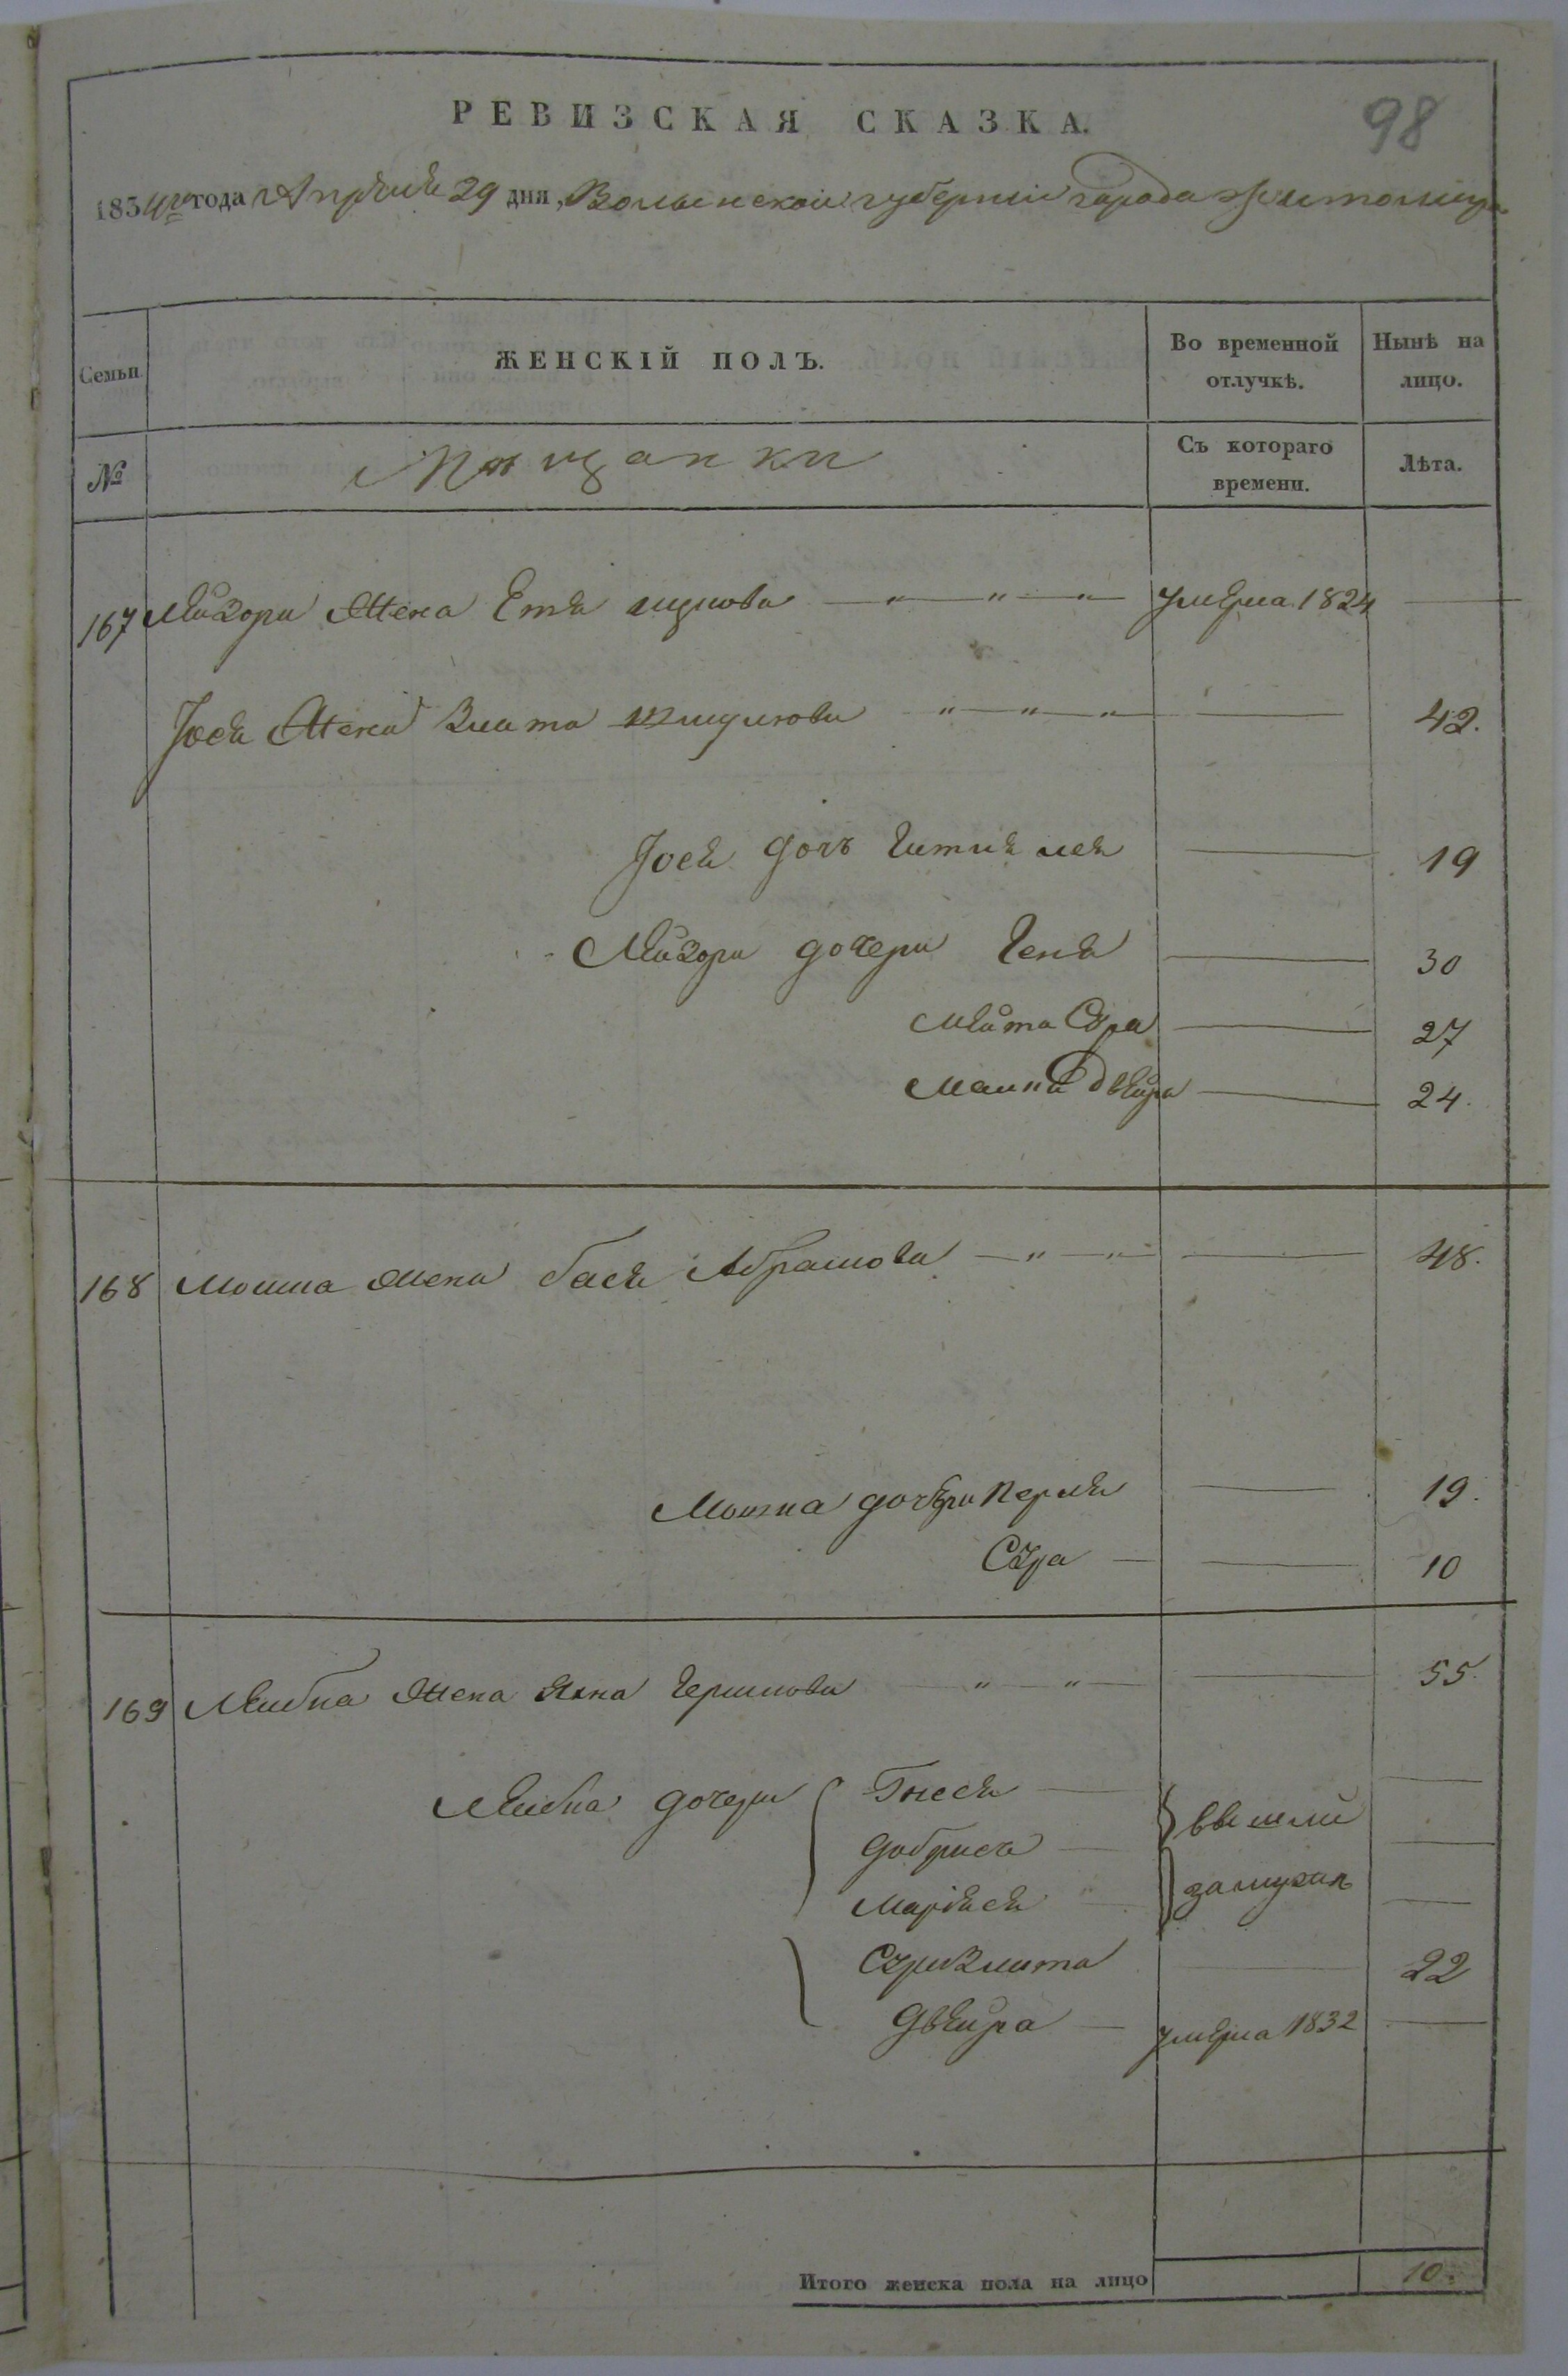 РЕВИЗСКАЯ СКАЗКА.
98
1834го года Апреля 29 дня, Волынской губернiи города Житомира
Семьи.
ЖЕНСКIЙ ПОЛЪ.
Во временной отлучкѣ.
Нынѣ на лицо.
№
Мѣщанки
Съ котораго времени.
Лѣта.
167 Лейзора жена Етя — " — " — " — умерла 1824 —
Iося жена Злата " — " — " — — 42.
Iося дочь Гитля лея — 19
Лейзора дочери Геня — 30
Мейта Сура — 27
Двейра — 24.
168 Мошка жена бася Абрамова — " — " — — 48.
Мошка дочери Перля — 19.
Сура — — 10
169 Лейбка жена Хана Гершкова — " — " — — 55.
Лейбка дочери Гнеся — —
Добрися — вышли —
Марьяся — замужъ —
Сура Злата — 22
Двейра — умерла 1832 —
Итого женска пола на лицо 10.